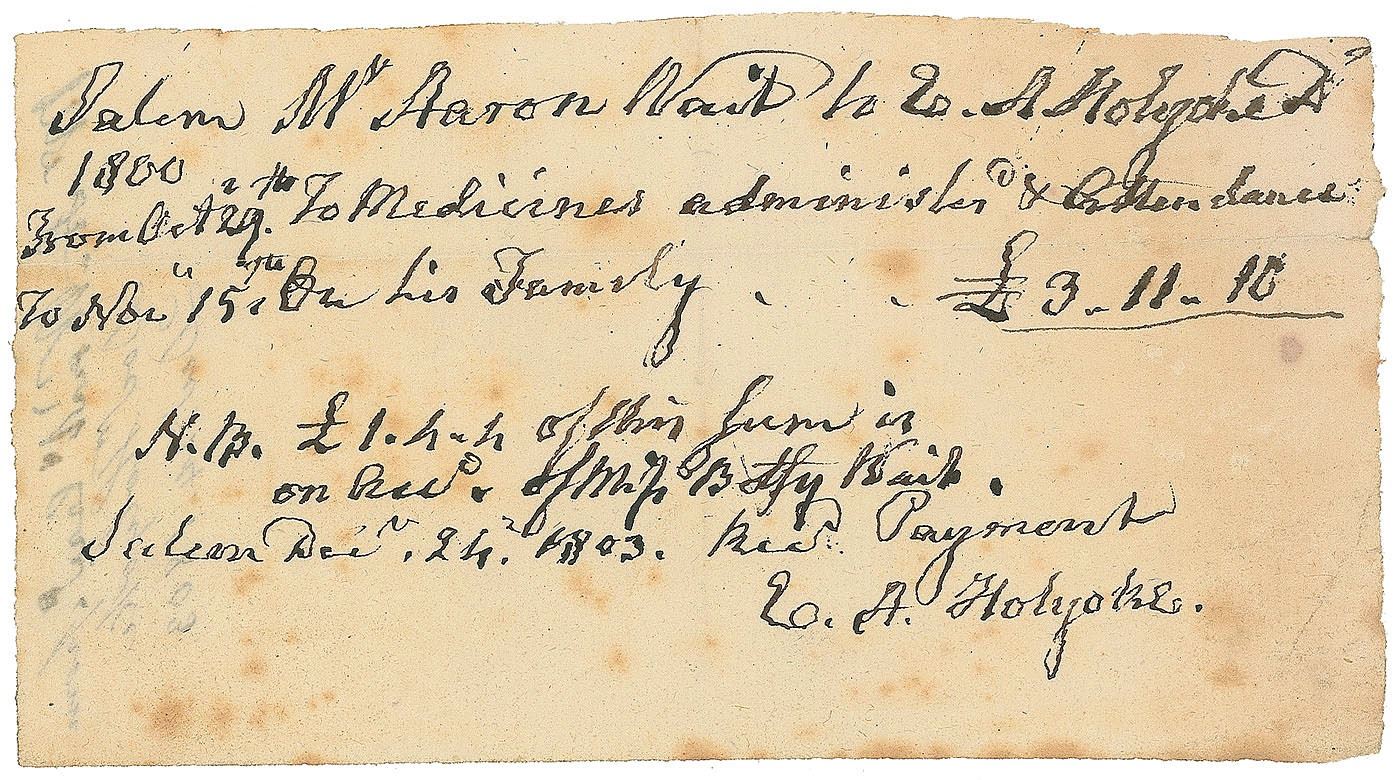 Salem Mr Aaron Wait to E. A Holyoke Dr
1800
From Oct 29th. To Medicines administerd & Attendance
To Nov 15th. On his Family . . £ 3..11..10
N.B. £ 1.4..4 of this Sum is
on Accd. of Miss Betsy Wait.
Salem Decr. 24. 1803. Recd. Payment
E. A. Holyoke.